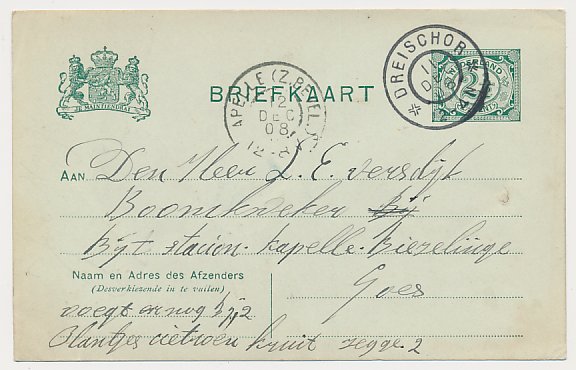 JE MAINTIENDRAI
BRIEFKAART
DREISCHOR
11 DEC
NEDERLAND
KAPELLE (Z. BEVEL.)
12
DEC
08
AAN Den Heer L. E. versdijt
Boomkweker bij
Bijt stacion. kapelle. Biezelinge
Goes
Naam en Adres des Afzenders
(Desverkiezende in te vullen)
voegt er nog bij 2
Plantjes citroen kruit zegge. 2